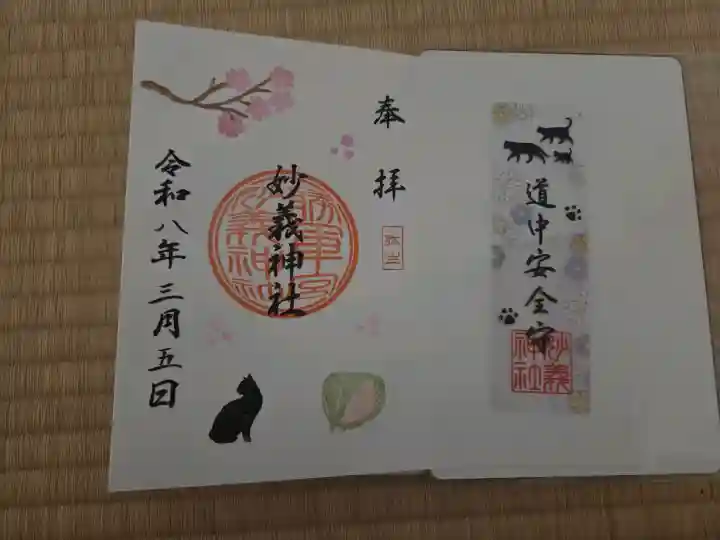 道中安全守
妙義
神社
奉拝
妙義神社
令和八年三月五日